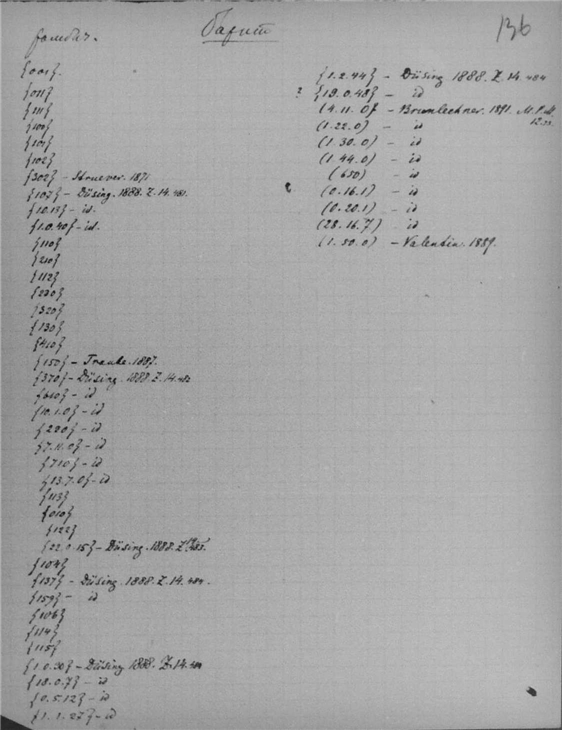 Барит
136
{001}.
{011}
{111}
{100}
{101}
{102}
{302} - Struever. 1871
{107} - Düsing. 1888. Z. 14. 481.
{10.13} - id.
{1.0.40} - id.
{110}
{210}
{112}
{230}
{320}
{130}
{410}
{150} - Traube. 1887.
{370} - Düsing. 1888. Z. 14. 482
{610} - id
{10.1.0} - id
{220} - id
{7.11.0} - id
{710} - id
{13.7.0} - id
{113}
{010}
{122}
{22.0.15} - Düsing. 1888. Z. 14. 483.
{104}
{137} - Düsing. 1888. Z. 14. 484.
{159} - id
{106}
{114}
{115}
{1.0.30} - Düsing 1888. Z. 14.
{18.0.7} - id
{0.5.12} - id
{1.1.27} - id
{1.2.44} - Düsing 1888. Z. 14. 484
? {19.0.48} - id
(4.11.0) - Brunlechner. 1891.
(1.22.0) - id
(1.30.0) - id
(1.44.0) - id
(650) - id
(0.16.1) - id
(0.20.1) - id
(28.16.7) - id
(1.50.0) - Valentin. 1889.